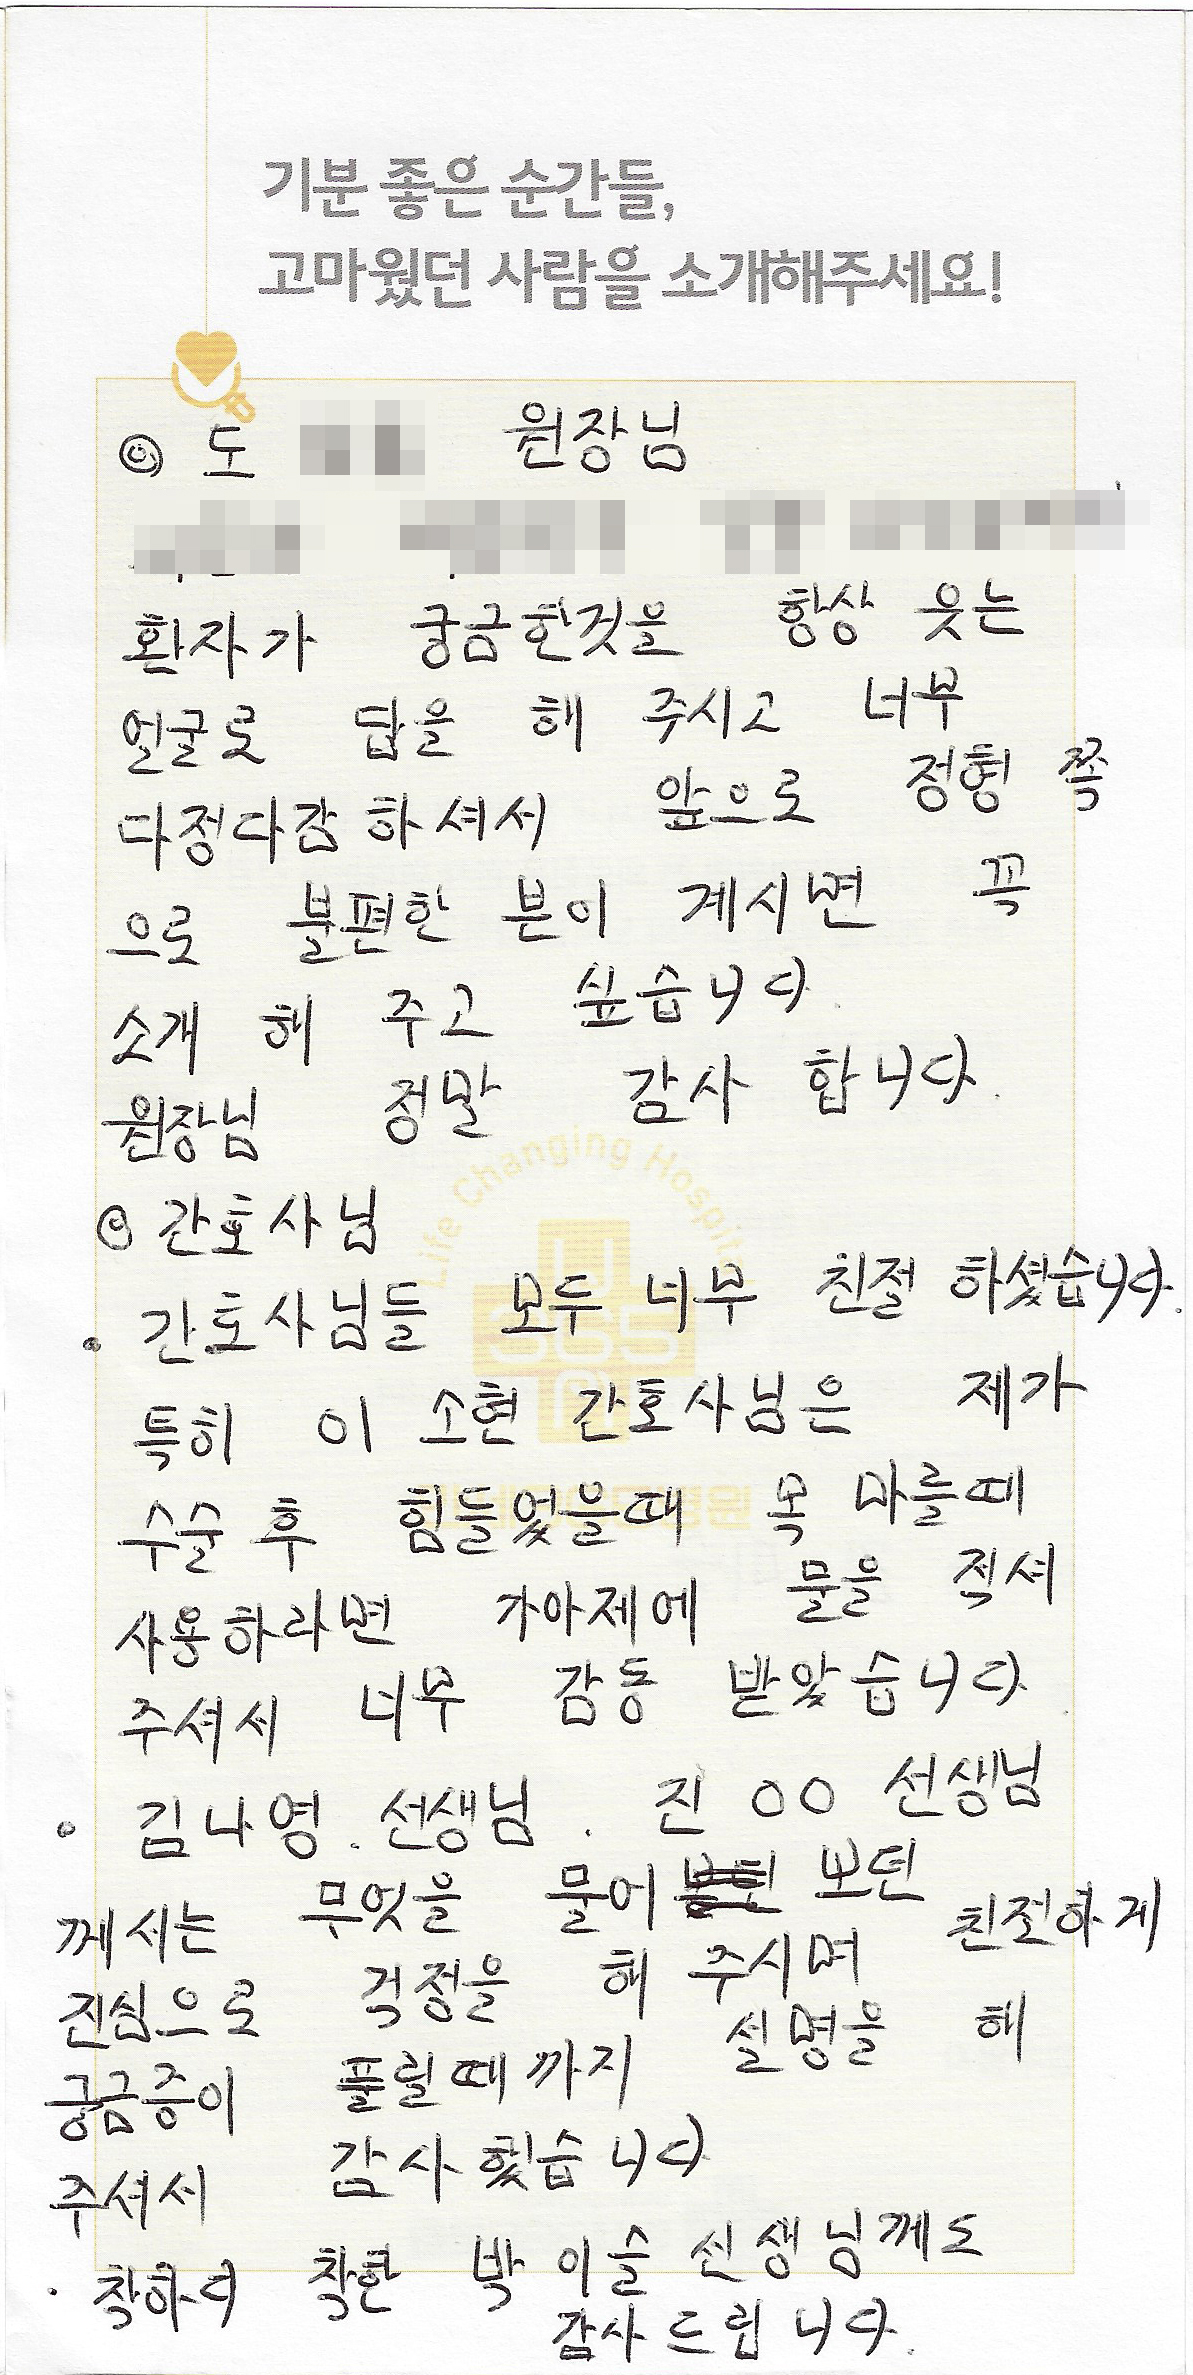 기분 좋은 순간들,
고마웠던 사람을 소개해주세요!
◎ 도 원장님
환자가 궁금한것을 항상 웃는
얼굴로 답을 해 주시고 너무
다정다감 하셔서 앞으로 정형 쪽
으로 불편한 분이 계시면 꼭
소개 해 주고 싶습니다.
원장님 정말 감사 합니다.
◎ 간호사님
• 간호사님들 모두 너무 친절 하셨습니다.
특히 이 소현 간호사님은 제가
수술 후 힘들었을때 목 마를때
사용하라면 가아제에 물을 적셔
주셔서 너무 감동 받았습니다.
• 김나영. 선생님. 진 OO 선생님
께서는 무엇을 물어 보던 친절하게
진심으로 걱정을 해 주시며
궁금증이 풀릴때까지 설명을 해
주셔서 감사했습니다
• 착하디 착한 박 이슬 선생님께도
감사드립니다.
Life Changing Hospital